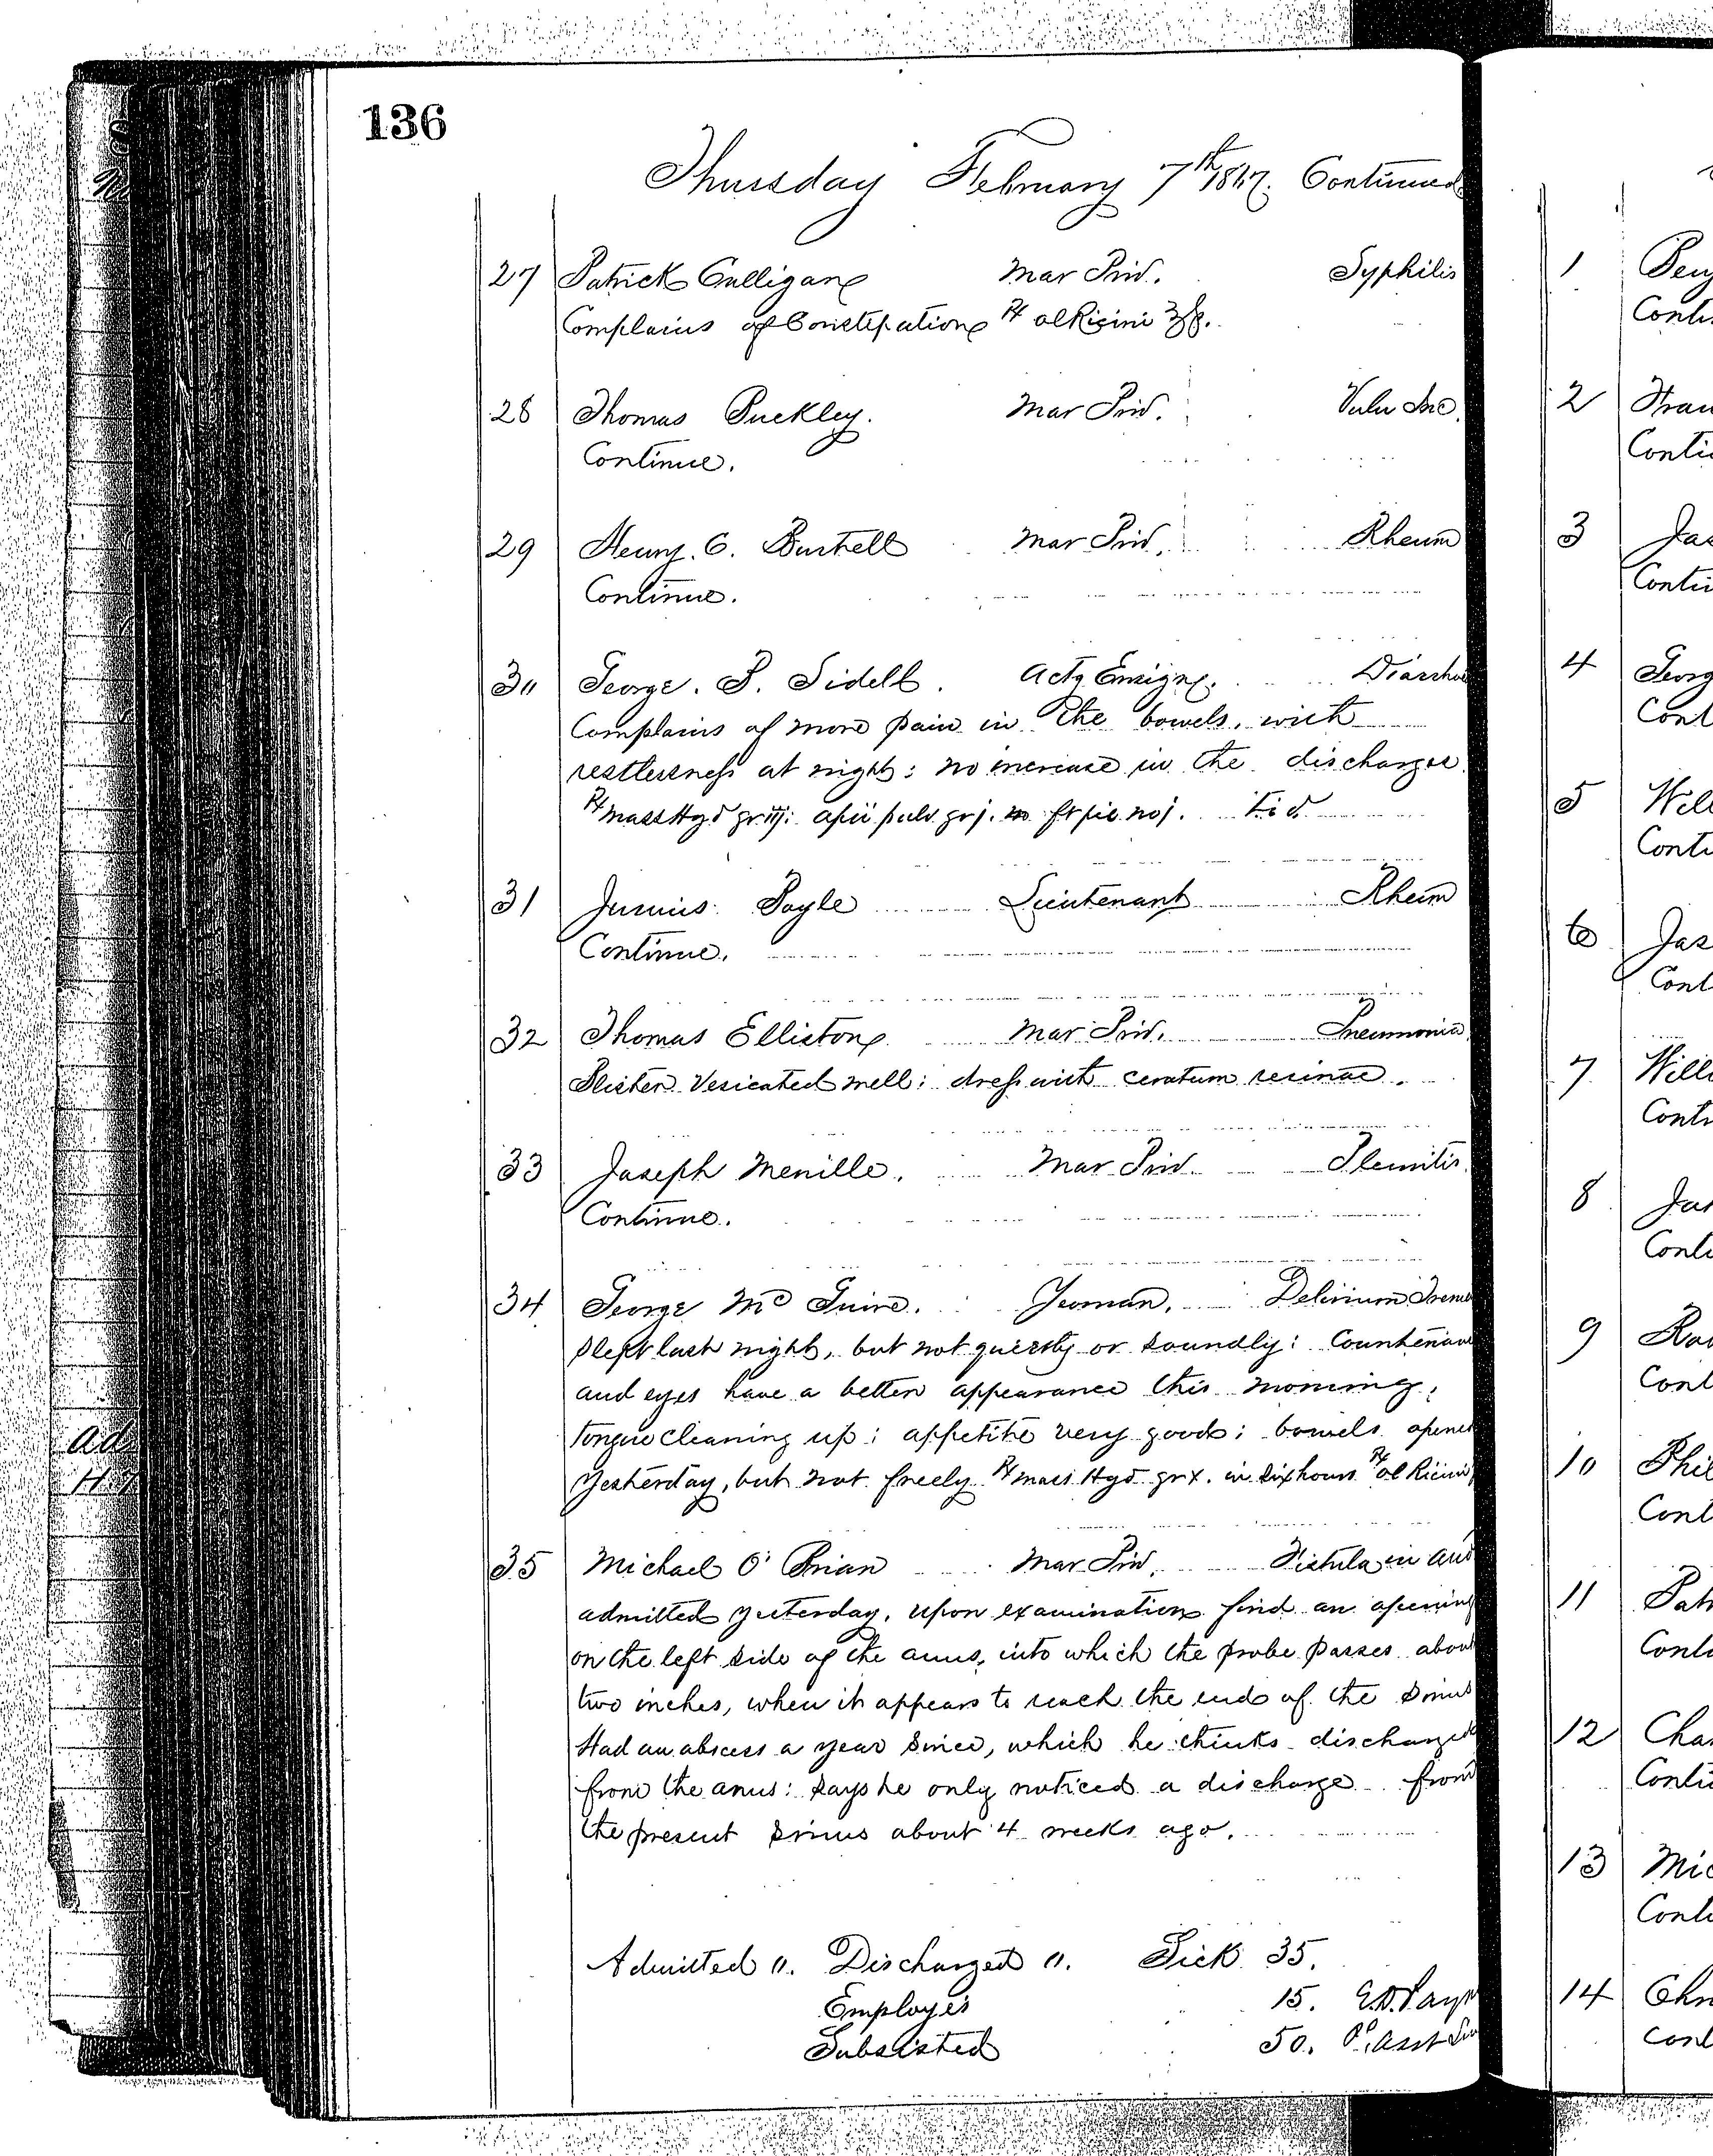 136
Thursday February 7th 1867. Continued
27 Patrick Culligan Mar Priv. Syphilis
Complains of Constipation ℞ ol Ricini ℥ß.
28 Thomas Buckley. Mar Priv. Vuln Inc.
Continue.
29 Henry. C. Burtell Mar Priv. Rheum
Continue.
30 George. P. Sidell. Actg Ensign. Diarrhoe
Complains of more pain in the bowels, with
restlessness at night: no increase in the discharges
℞ Mass Hyd gr iij: opii pulv grj. m ft pil noj. Tid
31 Junius Boyle Lieutenant Rheum
Continue.
32 Thomas Elliston Mar Priv. Pneumonia
Blister Vesicated well: dress with ceratum resinae.
33 Joseph Menille. Mar Priv. Pleuritis
Continue.
34 George Mc Guire. Yeoman. Delirium Treme
Slept last night, but not quietly or soundly: Countenan
and eyes have a better appearance this morning;
tongue cleaning up: appetite very good: bowels opened
yesterday, but not freely ℞ mass Hyd grx. in six hours ℞ ol Ricini
35 Michael O' Brian Mar Priv. Fistula in Ano
admitted yesterday, upon examination find an opening
on the left side of the anus, into which the probe passes about
two inches, when it appears to reach the end of the sinus
Had an abscess a year since, which he thinks discharged
from the anus: says he only noticed a discharge from
the present sinus about 4 weeks ago.
Admitted 0. Discharged 0. Sick 35.
Employe's 15. E.D. Payn
Subsisted 50. Pd. Asst Sur
1 Benj
Conti
2 Fran
Conti
3 Jas
Conti
4 Georg
Cont
5 Will
Conti
6 Jas
Cont
7 Willi
Conti
8 Jas
Conti
9
Cont
10 Phil
Cont
11 Patr
Conti
12 Cha
Conti
13 Mic
Conti
14 Chr
Cont
Ad